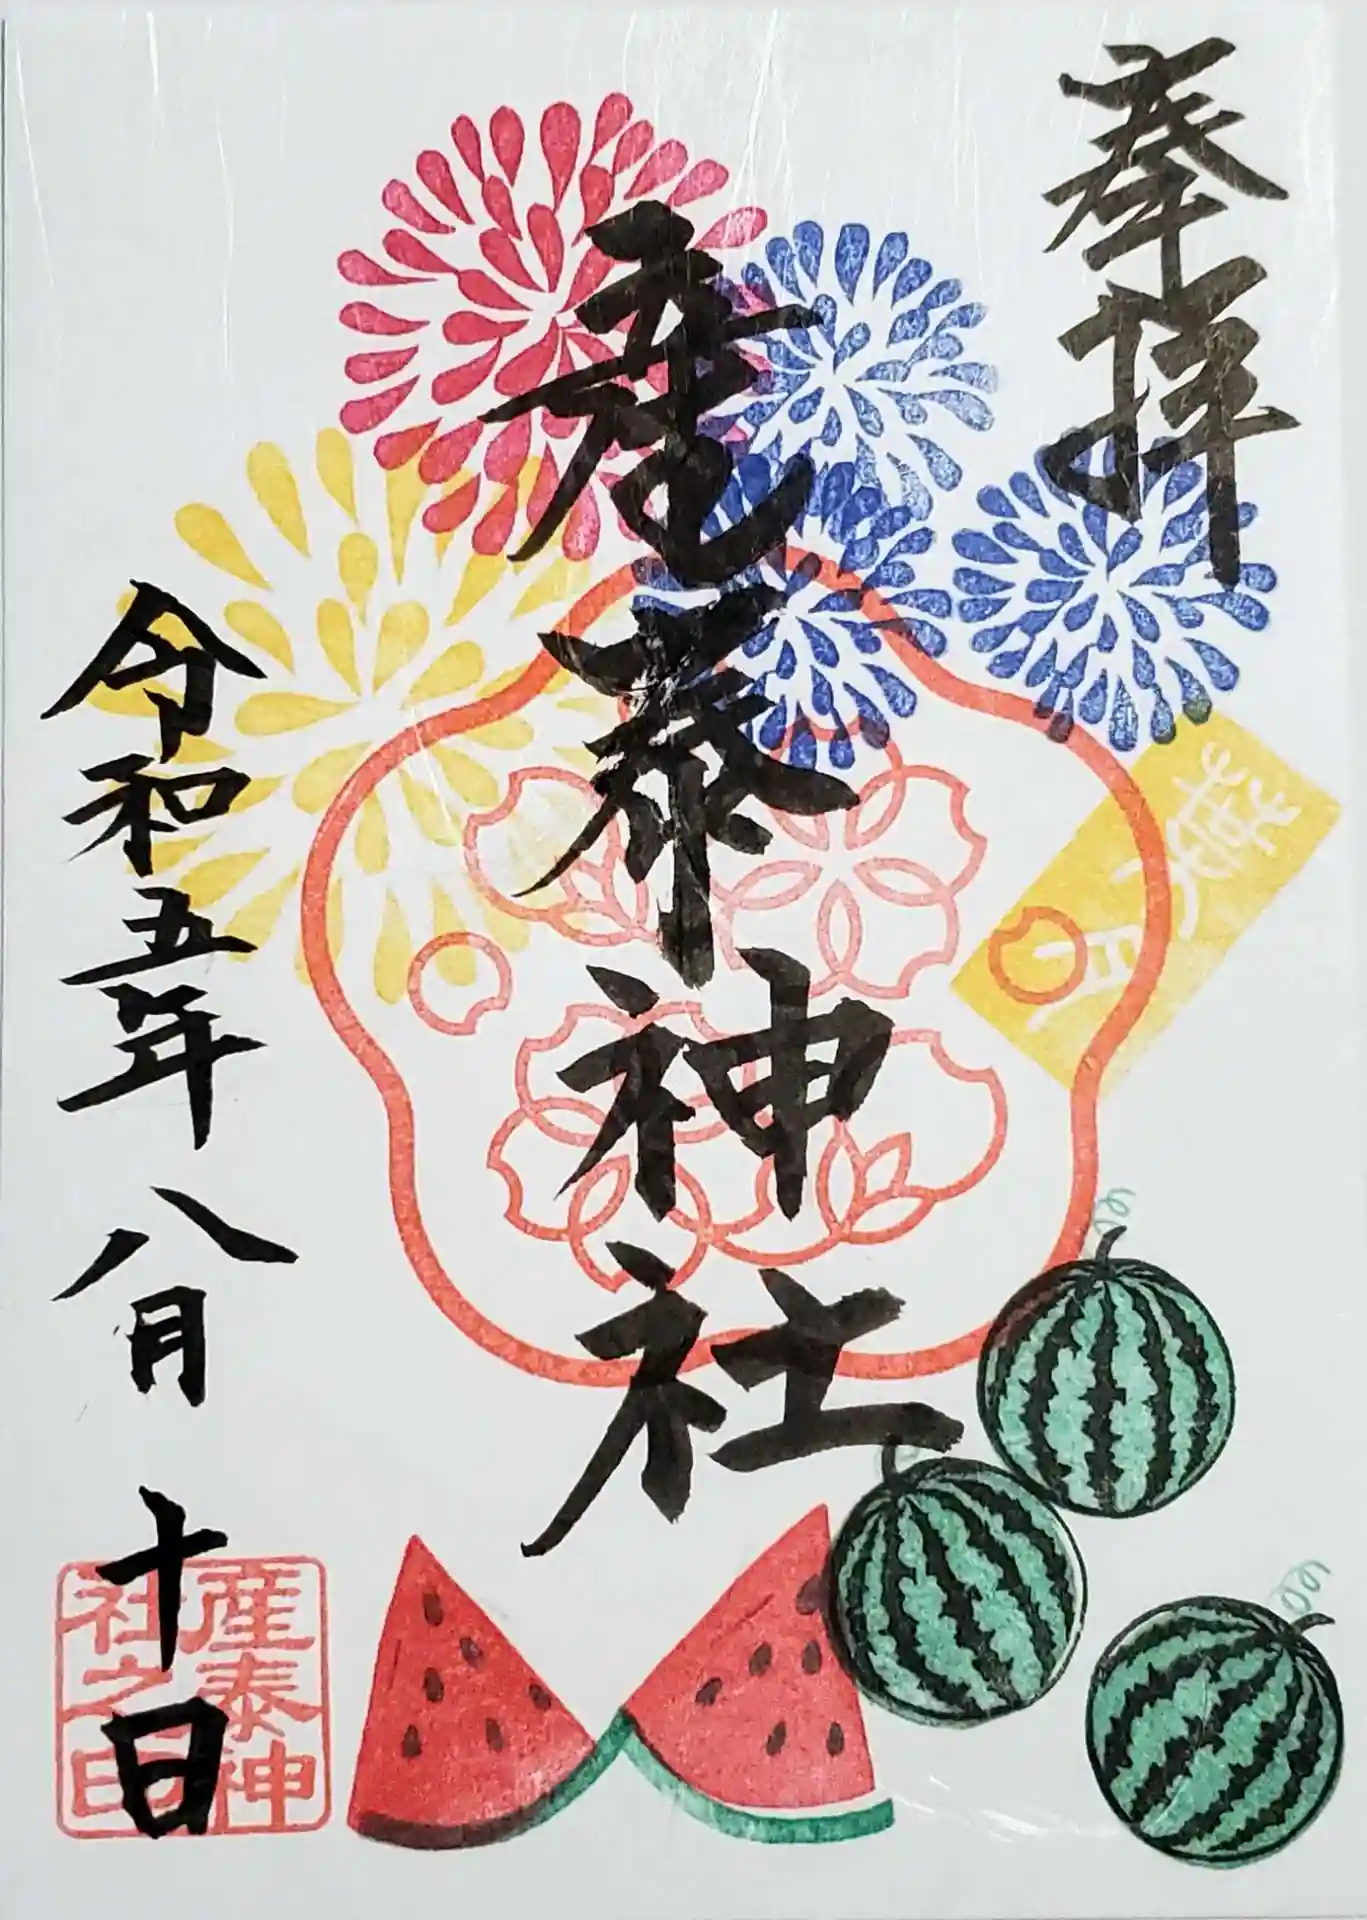 奉拝
葉月
産泰神社
令和五年八月十日
産泰神
社之印